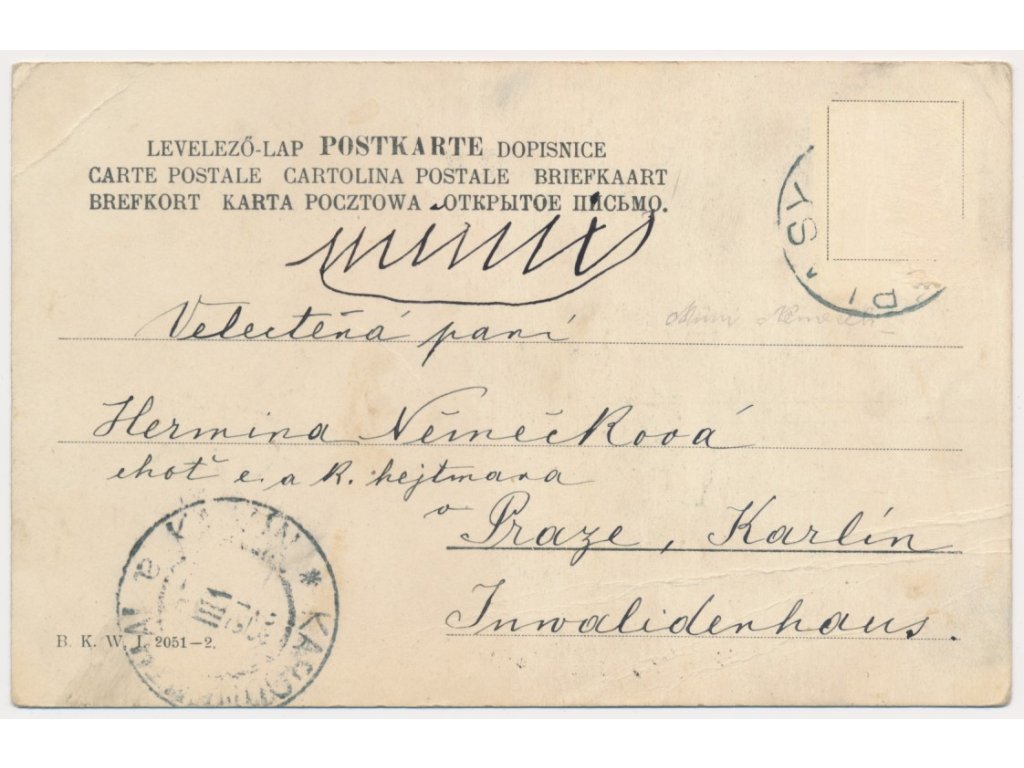 LEVELEZŐ-LAP POSTKARTE DOPISNICE
CARTE POSTALE CARTOLINA POSTALE BRIEFKAART
BREFKORT KARTA POCZTOWA ОТКРЫТОЕ ПИСЬМО.
Velectěná paní
Hermina Němečková
choť c. a k. hejtmana
v Praze, Karlín
Invalidenhaus.
B. K. W. I. 2051–2.